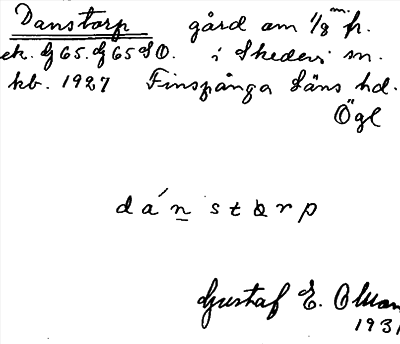 Danstorp gård om 1/8 m. fr.
ek. bl 65. bl 65 SO. i Skedevi sn.
kb. 1927 Finspånga läns hd.
Ögl
dánstɒrp
Gustaf E. Olson
1931